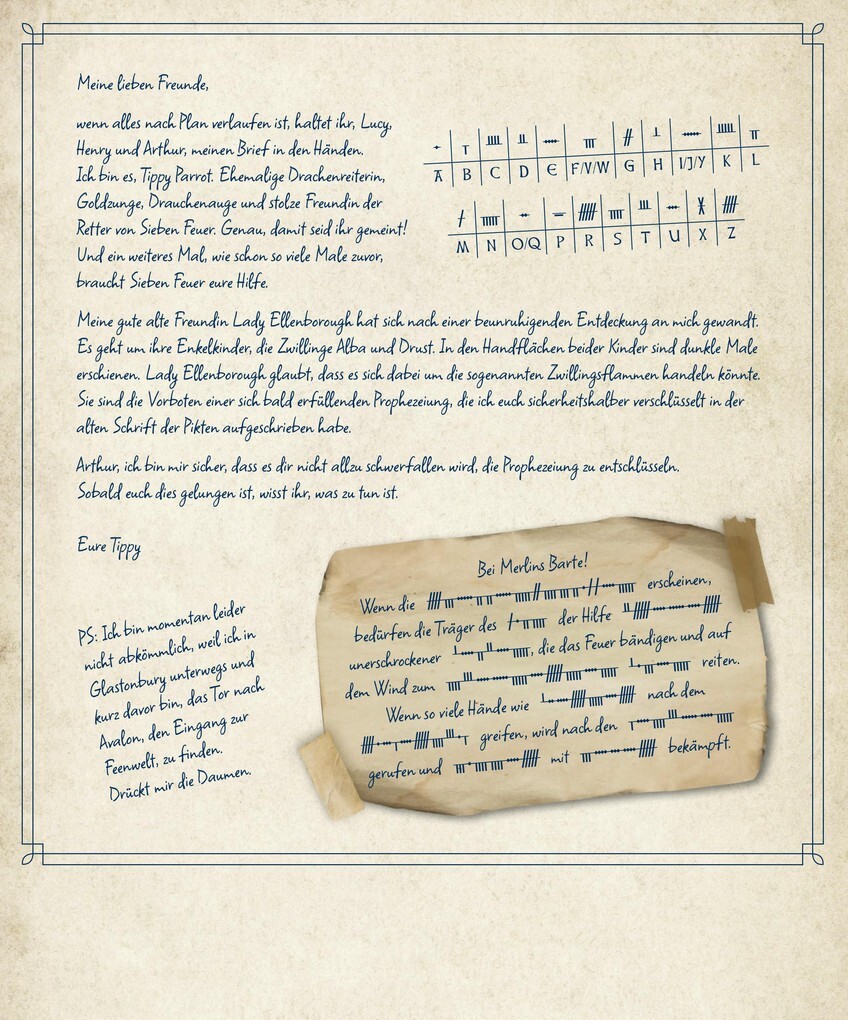 Meine lieben Freunde,
wenn alles nach Plan verlaufen ist, haltet ihr, Lucy,
Henry und Arthur, meinen Brief in den Händen.
Ich bin es, Tippy Parrot. Ehemalige Drachenreiterin,
Goldzunge, Drauchenauge und stolze Freundin der
Retter von Sieben Feuer. Genau, damit seid ihr gemeint!
Und ein weiteres Mal, wie schon so viele Male zuvor,
braucht Sieben Feuer eure Hilfe.
A B C D E F/V/W G H I/J/Y K L
M N O/Q P R S T U X Z
Meine gute alte Freundin Lady Ellenborough hat sich nach einer beunruhigenden Entdeckung an mich gewandt.
Es geht um ihre Enkelkinder, die Zwillinge Alba und Drust. In den Handflächen beider Kinder sind dunkle Male
erschienen. Lady Ellenborough glaubt, dass es sich dabei um die sogenannten Zwillingsflammen handeln könnte.
Sie sind die Vorboten einer sich bald erfüllenden Prophezeiung, die ich euch sicherheitshalber verschlüsselt in der
alten Schrift der Pikten aufgeschrieben habe.
Arthur, ich bin mir sicher, dass es dir nicht allzu schwerfallen wird, die Prophezeiung zu entschlüsseln.
Sobald euch dies gelungen ist, wisst ihr, was zu tun ist.
Eure Tippy
PS: Ich bin momentan leider
nicht abkömmlich, weil ich in
Glastonbury unterwegs und
kurz davor bin, das Tor nach
Avalon, den Eingang zur
Feenwelt, zu finden.
Drückt mir die Daumen.
Bei Merlins Barte!
Wenn die erscheinen,
bedürfen die Träger des der Hilfe
unerschrockener , die das Feuer bändigen und auf
dem Wind zum reiten.
Wenn so viele Hände wie nach dem
greifen, wird nach den
gerufen und mit bekämpft.